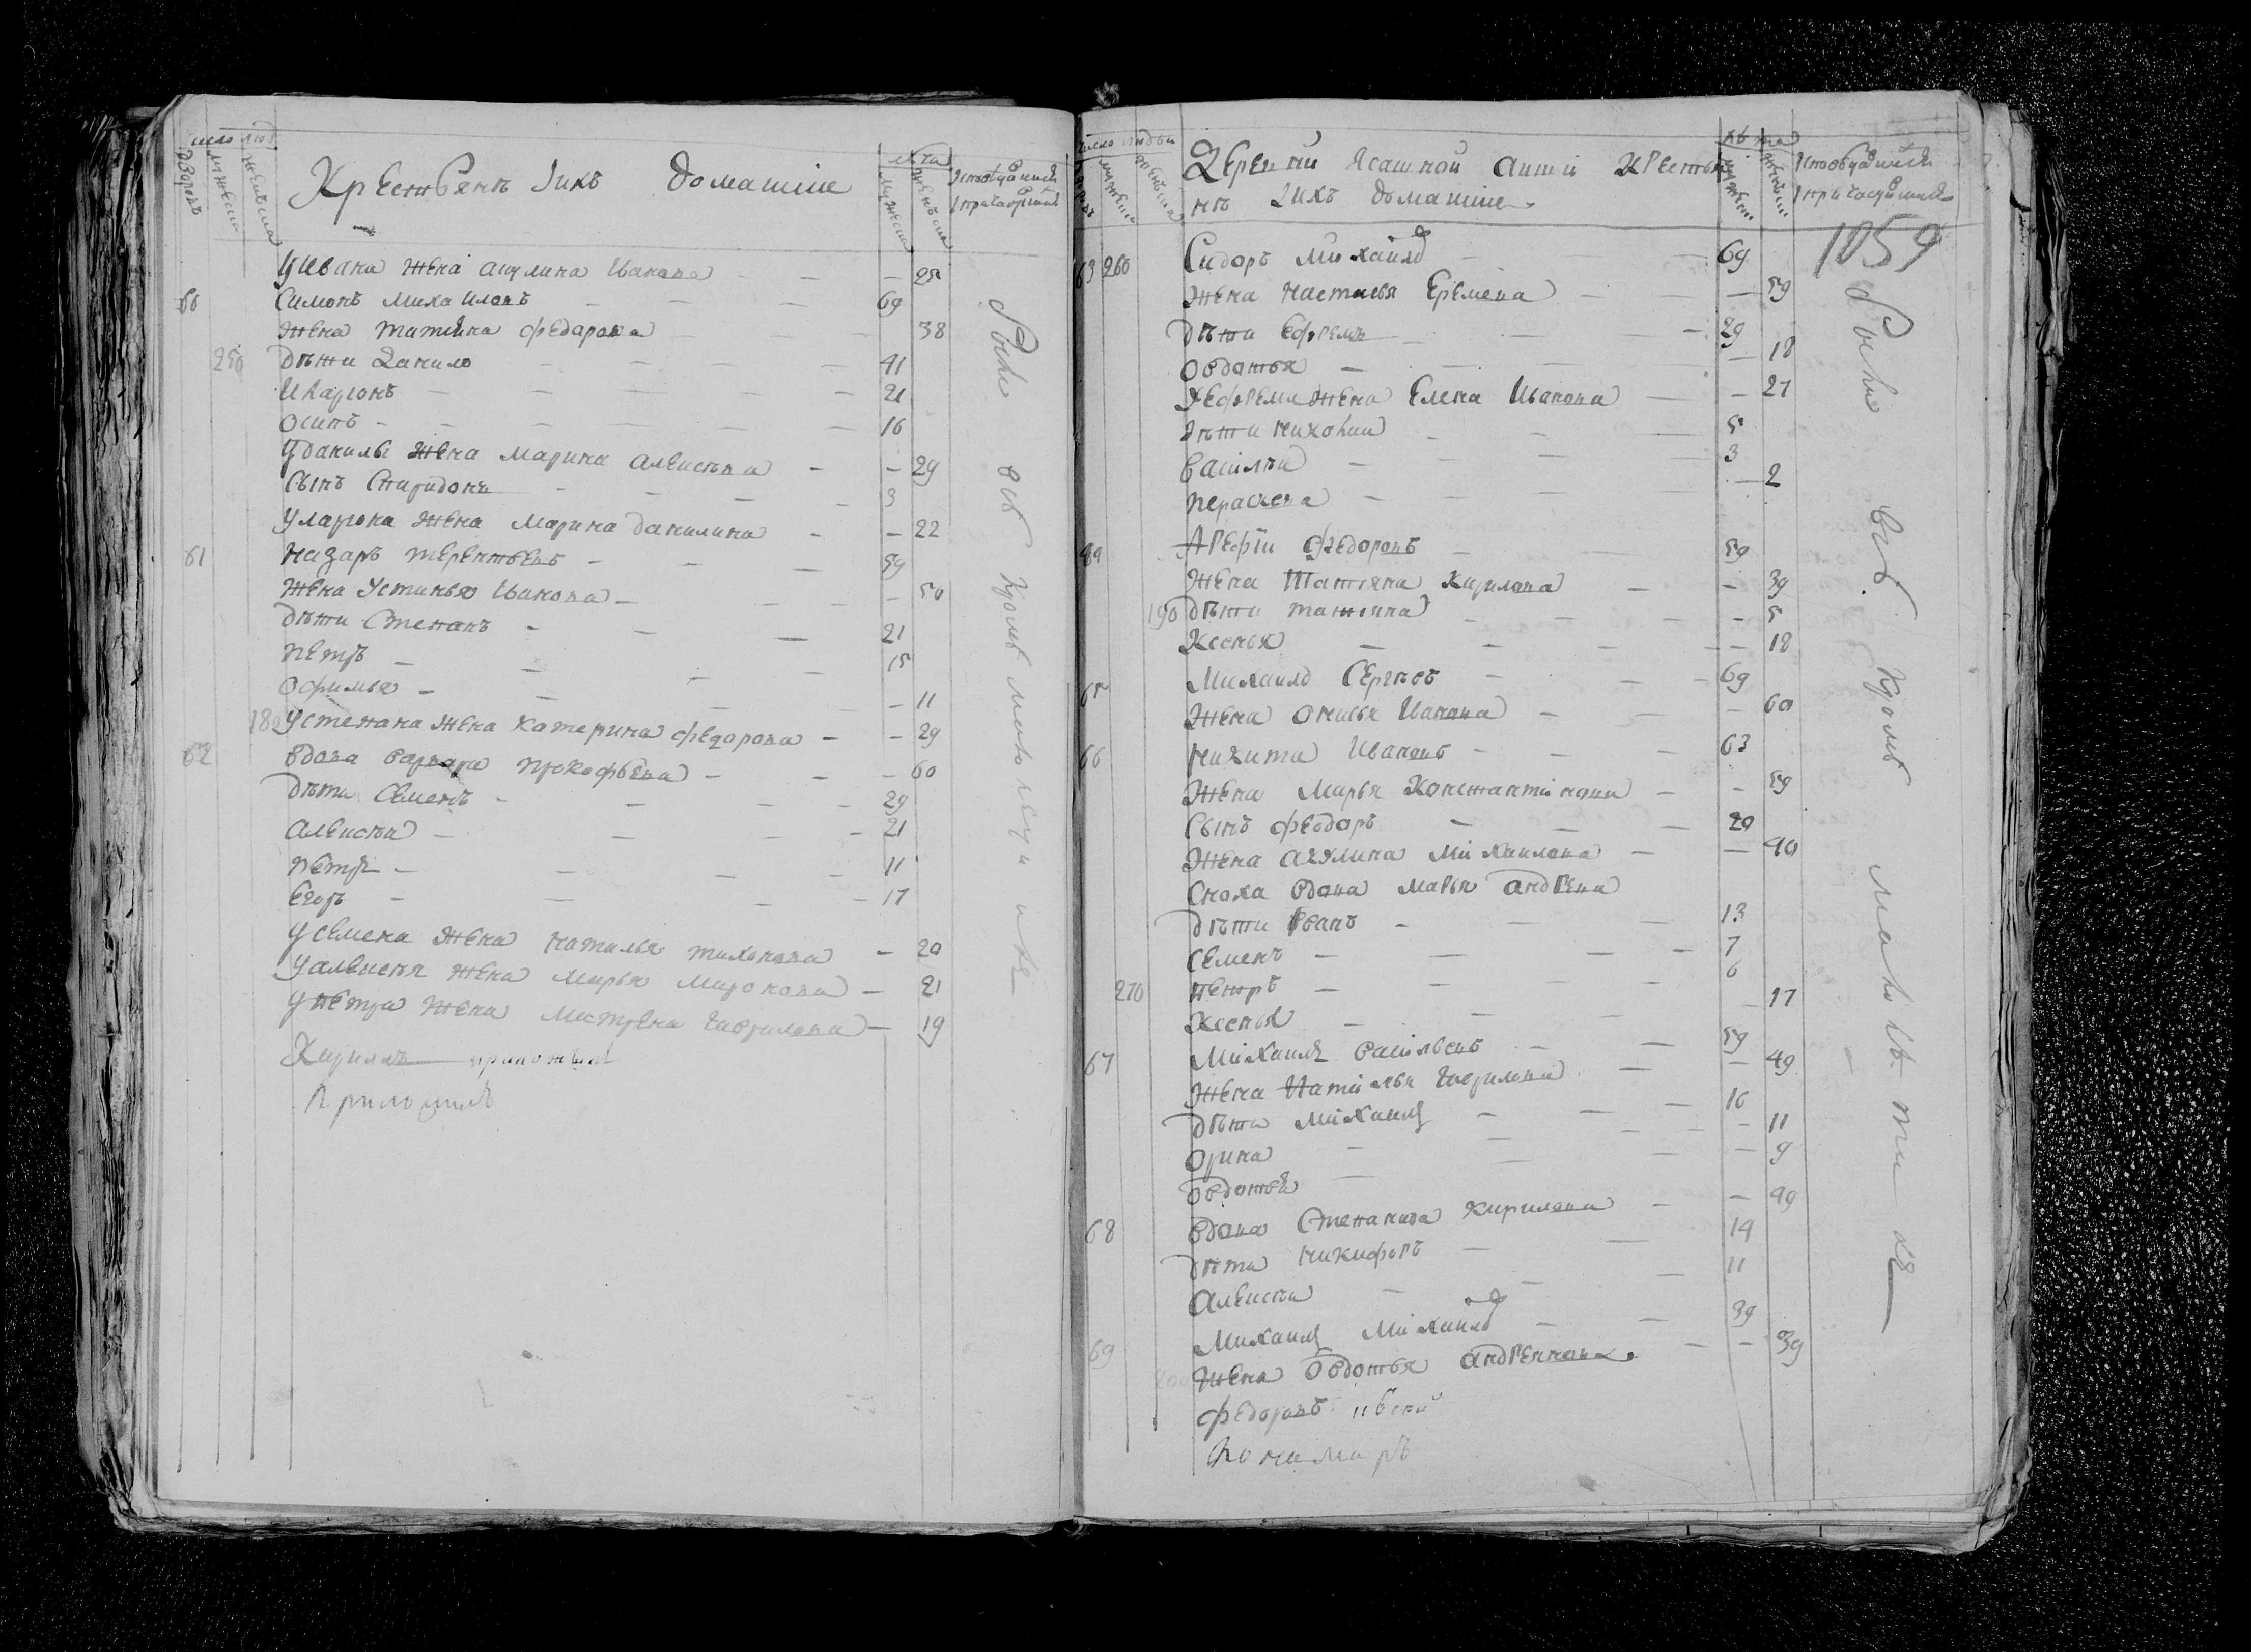 число люд
дворовъ
мужеска
женска
Крестьянъ Іихъ Домашніе
лѣта
мужеска
женска
У Ивана жена акулина Иванова — — — 25
60 Симонъ Михаиловъ — — — 69
жена татияна федарова — — — 38
250 дѣти Данило — — — 41
Иларионъ — — — 21
Осипъ — — — 16
У данилы жена марина алексѣва — — 29
Сынъ Спиридонъ — — — 3
У лариона жена марина данилина — — 22
61 назаръ терентьевъ — — — 59
жена Устинья Иванова — — — 50
дѣти Степанъ — — — 21
Петръ — — — 15
Офимья — — — 11
180 У степана жена катерина федорова — — 29
62 вдова варвара прокофьева — — — 60
дѣти Семенъ — — — 29
алексѣи — — — 21
петръ — — — 11
Егоръ — — — 17
У семена жена наталья тихонова — 20
У алексѣя жена марья миронова — 21
У петра жена матрена гаврилова — 19
Кирилъ
Приложилъ
всѣ кромѣ
число людѣи
мужеска
женска
Деревни Ясашной крестья
нъ Іихъ домашніе
лѣта
1059
63 260 Сидоръ михаилов — — 69
жена настасья Еремева — — 59
дѣти Ефремъ — — 29
овдотья — — 18
У Ефрема жена Елена Иванова — — 27
дѣти никохаи — — 5
васілѣи — — 3
пераскева — — 2
Арефіи федоровъ — — 59
жена Татияна Кирилова — — 39
190 дѣти татияна — — 5
Ксенья — — 18
65 Михаило Сергѣевъ — — 69
жена онисья Иванова — — 60
66 никита Ивановъ — — 63
жена Марья Константінова — — 59
Сынъ феодоръ — — 20
жена акулина михаилова — — 40
Сноха вдова марья андрева
дѣти Иванъ — — 13
Семенъ — — 7
270 петръ — — 6
Ксенья — — 17
67 Михаила васільевъ — — 59
жена Наталья Гаврилова — — 49
дѣти михаила — — 16
Орина — — 11
овдотья — — 9
68 вдова Степанида кирилова — — 49
дѣти никифоръ — — 14
алексѣи — — 11
69 михаила михаилов — — 39
200 жена овдотья андреянова — — 39
федоровъ
Пономаръ
всѣ кромѣ малолѣтних